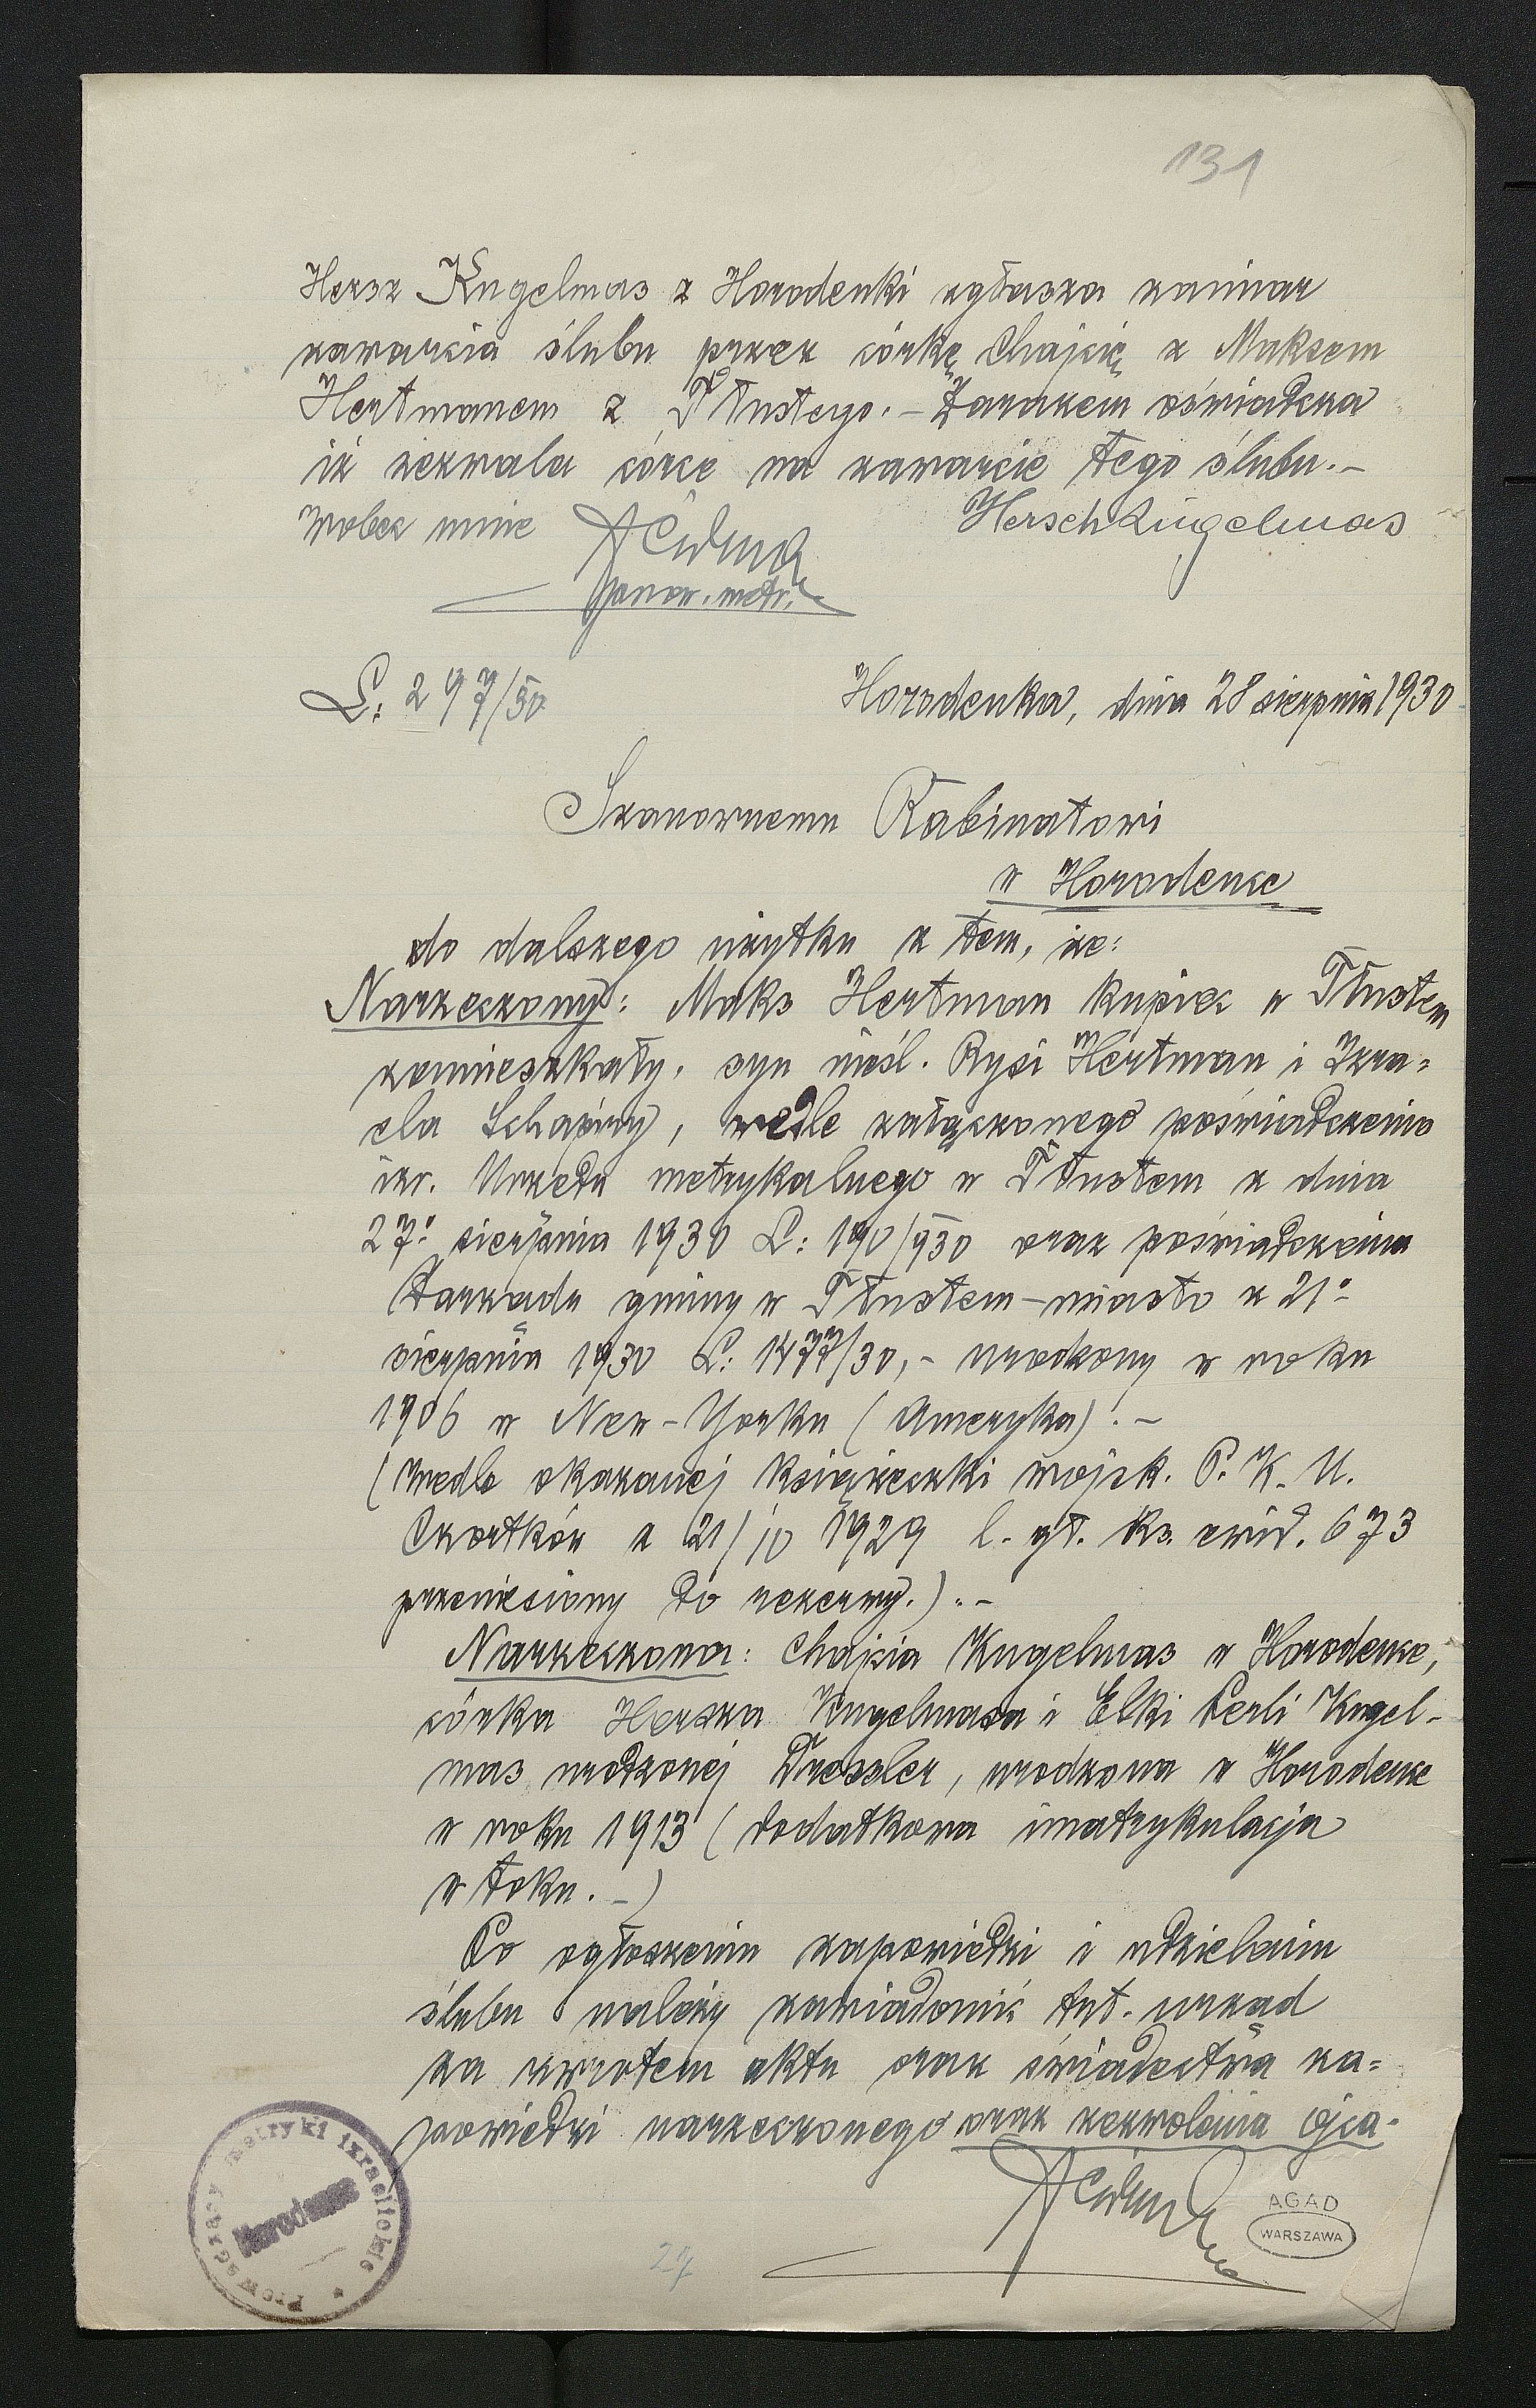 131
Hersz Kugelmas z Horodenki zgłasza zamiar
zawarcia ślubu przez córkę Chajcię z Maksem
Hertmanem z Tłustego. – Zarazem oświadcza
iż zezwala córce na zawarcie tego ślubu. –
Wobec mnie
Hersch Kugelmas
prow. metr.
L: 297/30
Horodenka, dnia 28 sierpnia 1930
Szanownemu Rabinatowi
w Horodence
do dalszego użytku z tem, że:
Narzeczony: Maks Hertman kupiec w Tłustem
zamieszkały, syn nieśl. Rysi Hertman i Izra=
ela Schapiry, wedle załączonego poświadczenia
izr. Urzędu metrykalnego w Tłustem z dnia
27. sierpnia 1930 L: 190/930 oraz poświadczenia
Zarządu gminy w Tłustem – miasto z 21.
sierpnia 1930 L: 1477/30, – urodzony w roku
1906 w New-Yorku (Ameryka). –
(Wedle okazanej książeczki wojsk. P. K. U.
Czortków z 21/10 1929 l. gł. ks. ewid. 673
przeniesiony do rezerwy.). –
Narzeczona: Chajcia Kugelmas w Horodence,
córka Hersza Kugelmasa i Elki Perli Kugel-
mas urodzonej Dressler, urodzona w Horodence
w roku 1913 (dodatkowa imatrykulacja
w toku. –)
Po ogłoszeniu zapowiedzi i udzieleniu
ślubu należy zawiadomić tut. urząd
za zwrotem aktu oraz świadectwa za=
powiedzi narzeczonego oraz zezwolenia ojca.
Prowadzący metryki izraelickie
Horodence
AGAD
WARSZAWA
27